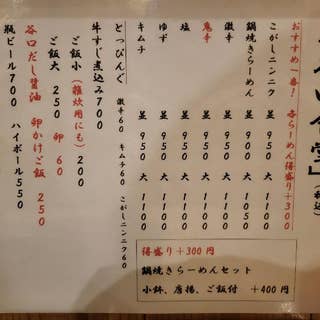 食堂」
(税込)
おすすめ一番! 各らーめん得盛り+300
こがしニンニク 並950 大1100
鍋焼きらーめん 並950 大1100
激辛 並950 大1100
鬼辛 並950 大1100
塩 並950 大1100
ゆず 並950 大1100
キムチ 並950 大1100
とっぴんぐ 激辛60 キムチ60 こがしニンニク60
牛すじ煮込み700
ご飯小(雑炊用にも)200
ご飯大 250 卵 60
谷口だし醤油 卵かけご飯 250
瓶ビール700 ハイボール550
得盛り+300円
鍋焼きらーめんセット
小鉢、唐揚、ご飯付 +400円